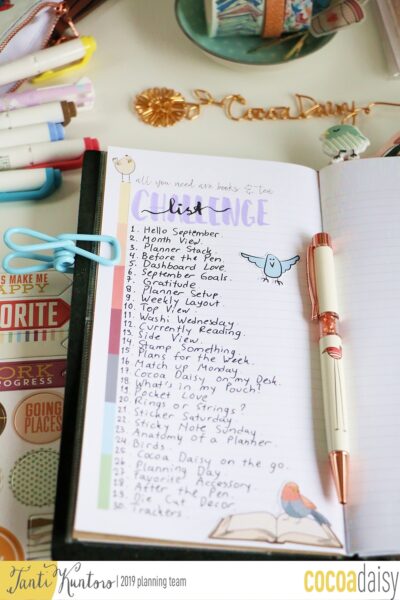 Cocoa Daisy
all you need are books & tea
CHALLENGE
list
1. Hello September.
2. Month View.
3. Planner Stack.
4. Before the Pen.
5. Dashboard Love.
6. September Goals.
7. Gratitude
8. Planner Setup.
9. Weekly Layout.
10. Top View
11. Washi Wednesday
12. Currently Reading.
13. Side View.
14. Stamp Something.
15. Plans for the Week.
16. Match up Monday
17. Cocoa Daisy on my Desk.
18. What's in my Pouch?
19. Pocket Love
20. Rings or Strings?
21. Sticker Saturday
22. Sticky Note Sunday
23. Anatomy of a Planner.
24. Birds.
25. Cocoa Daisy on the go.
26. Planning Day.
27. Favorite Accessory.
28. After the Pen.
29. Die Cut Decor
30. Trackers.
MAKE ME
HAPPY
ORITE
WORK
PROGRESS
GOING
PLACES
Tanti Kuntoro | 2019 planning team
cocoadaisy